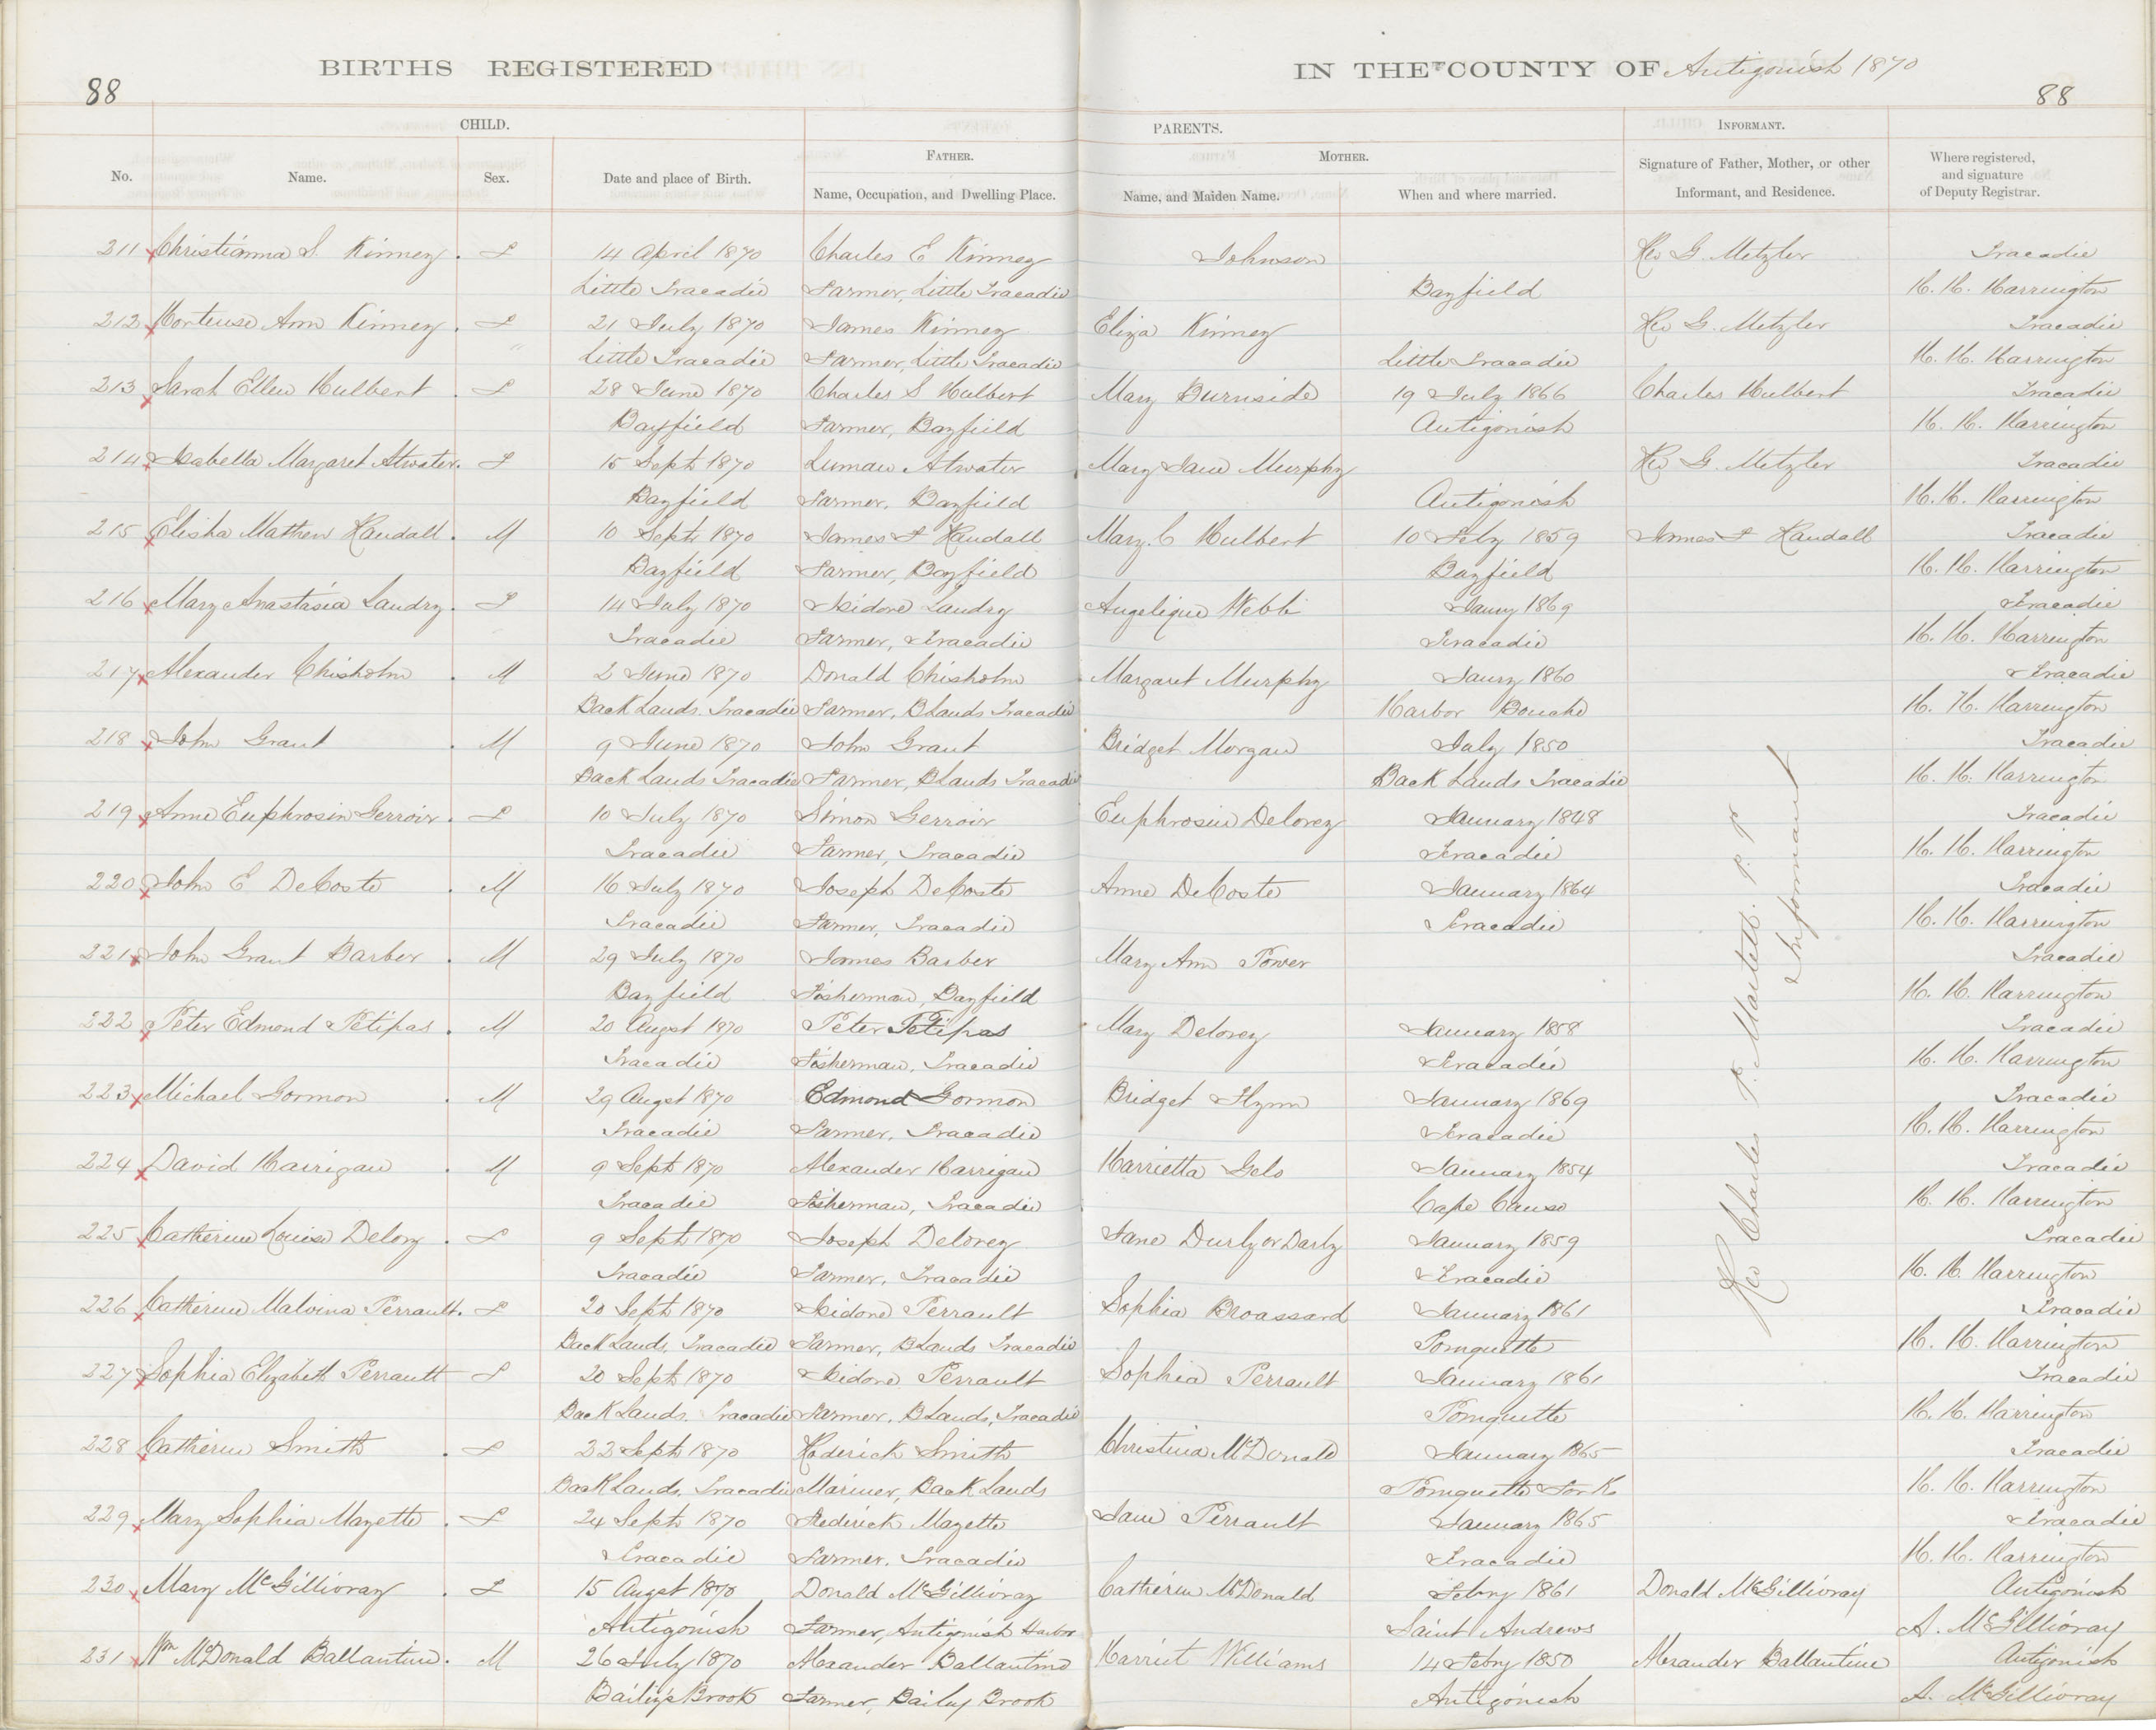 BIRTHS REGISTERED IN THE COUNTY OF Antigonish 1870
88 88
CHILD. PARENTS. INFORMANT.
FATHER. MOTHER.
No. Name. Sex. Date and place of Birth. Name, Occupation, and Dwelling Place. Name, and Maiden Name. When and where married. Signature of Father, Mother, or other Informant, and Residence. Where registered, and signature of Deputy Registrar.
211 Christianna S. Kinney. F 14 April 1870 Charles E Kinney Johnson Rev G. Metzler Tracadie
Little Tracadie Farmer, Little Tracadie Bayfield H. H. Harrington
212 Hortense Ann Kinney. F 21 July 1870 James Kinney Eliza Kinney Rev G. Metzler Tracadie
" Little Tracadie Farmer, Little Tracadie Little Tracadie H. H. Harrington
213 Sarah Ellen Hulbert. F 28 June 1870 Charles S Hulbert Mary Burnside 19 July 1866 Charles Hulbert Tracadie
Bayfield Farmer, Bayfield Antigonish H. H. Harrington
214 Isabella Margaret Atwater. F 15 Sept 1870 Luman Atwater Mary Jane Murphy Rev G. Metzler Tracadie
Bayfield Farmer, Bayfield Antigonish H. H. Harrington
215 Elisha Mathew Randall. M 10 Sept 1870 James F Randall Mary. C Hulbert 10 Feby 1859 James F Randall Tracadie
Bayfield Farmer, Bayfield Bayfield H. H. Harrington
216 Mary Anastasia Landry. F 14 July 1870 Isidore Landry Angelique Webb Jany 1869 Tracadie
Tracadie Farmer, Tracadie Tracadie H. H. Harrington
217 Alexander Chisholm. M 2 June 1870 Donald Chisholm Margaret Murphy Jany 1860 Tracadie
Back Lands. Tracadie Farmer, B Lands Tracadie Harbor Bouche H. H. Harrington
218 John Grant. M 9 June 1870 John Grant Bridget Morgan July 1850 Tracadie
Back Lands Tracadie Farmer, B Lands Tracadie Back Lands Tracadie H. H. Harrington
219 Anne Euphrosin Gerroir. F 10 July 1870 Simon Gerroir Euphrosin Delorey January 1848 Tracadie
Tracadie Farmer, Tracadie Tracadie H. H. Harrington
220 John E DeCoste. M 16 July 1870 Joseph DeCoste Anne DeCoste January 1864 Tracadie
Tracadie Farmer, Tracadie Tracadie H. H. Harrington
221 John Grant Barber. M 29 July 1870 James Barber Mary Ann Power Tracadie
Bayfield Fisherman, Bayfield H. H. Harrington
222 Peter Edmond Petipas. M 20 Augst 1870 Peter Petipas Mary Delorey January 1858 Tracadie
Tracadie Fisherman, Tracadie Tracadie H. H. Harrington
223 Michael Gormon. M 29 Augst 1870 Edmond Gormon Bridget Flynn January 1869 Tracadie
Tracadie Farmer, Tracadie Tracadie H. H. Harrington
224 David Harrigan. M 9 Sept 1870 Alexander Harrigan Harrietta Gelo January 1854 Tracadie
Tracadie Fisherman, Tracadie Cape Canso H. H. Harrington
225 Catherine Louise Delory. F 9 Sept 1870 Joseph Delorey Jane Durly or Darly January 1859 Tracadie
Tracadie Farmer, Tracadie Tracadie H. H. Harrington
226 Catherine Malvina Perrault. F 20 Sept 1870 Isidore Perrault Sophia Broassard January 1861 Tracadie
Back Lands, Tracadie Farmer, B Lands Tracadie Pomquette H. H. Harrington
227 Sophia Elizabeth Perrault F 20 Sept 1870 Isidore Perrault Sophia Perrault January 1861 Tracadie
Back Lands. Tracadie Farmer, B Lands, Tracadie Pomquette H. H. Harrington
228 Catherine Smith. F 22 Sept 1870 Roderick Smith Christina McDonald January 1865 Tracadie
Back Lands, Tracadie Mariner, Back Lands Pomquette Fork H. H. Harrington
229 Mary Sophia Mayette. F 24 Sept 1870 Frederick Mayette Jane Perrault January 1865 Tracadie
Tracadie Farmer, Tracadie Tracadie H. H. Harrington
230 Mary McGillivray. F 15 Augst 1870 Donald McGillivray Catherine McDonald Febry 1861 Donald McGillivray Antigonish
Antigonish Farmer, Antigonish Harbor Saint Andrews A. McGillivray
231 Wm McDonald Ballantine. M 26 July 1870 Alexander Ballantine Harriet Williams 14 Febry 1850 Alexander Ballantine Antigonish
Baily's Brook Farmer, Baily Brook Antigonish A. McGillivray
Rev Charles F. Martell. P. P.
Informant